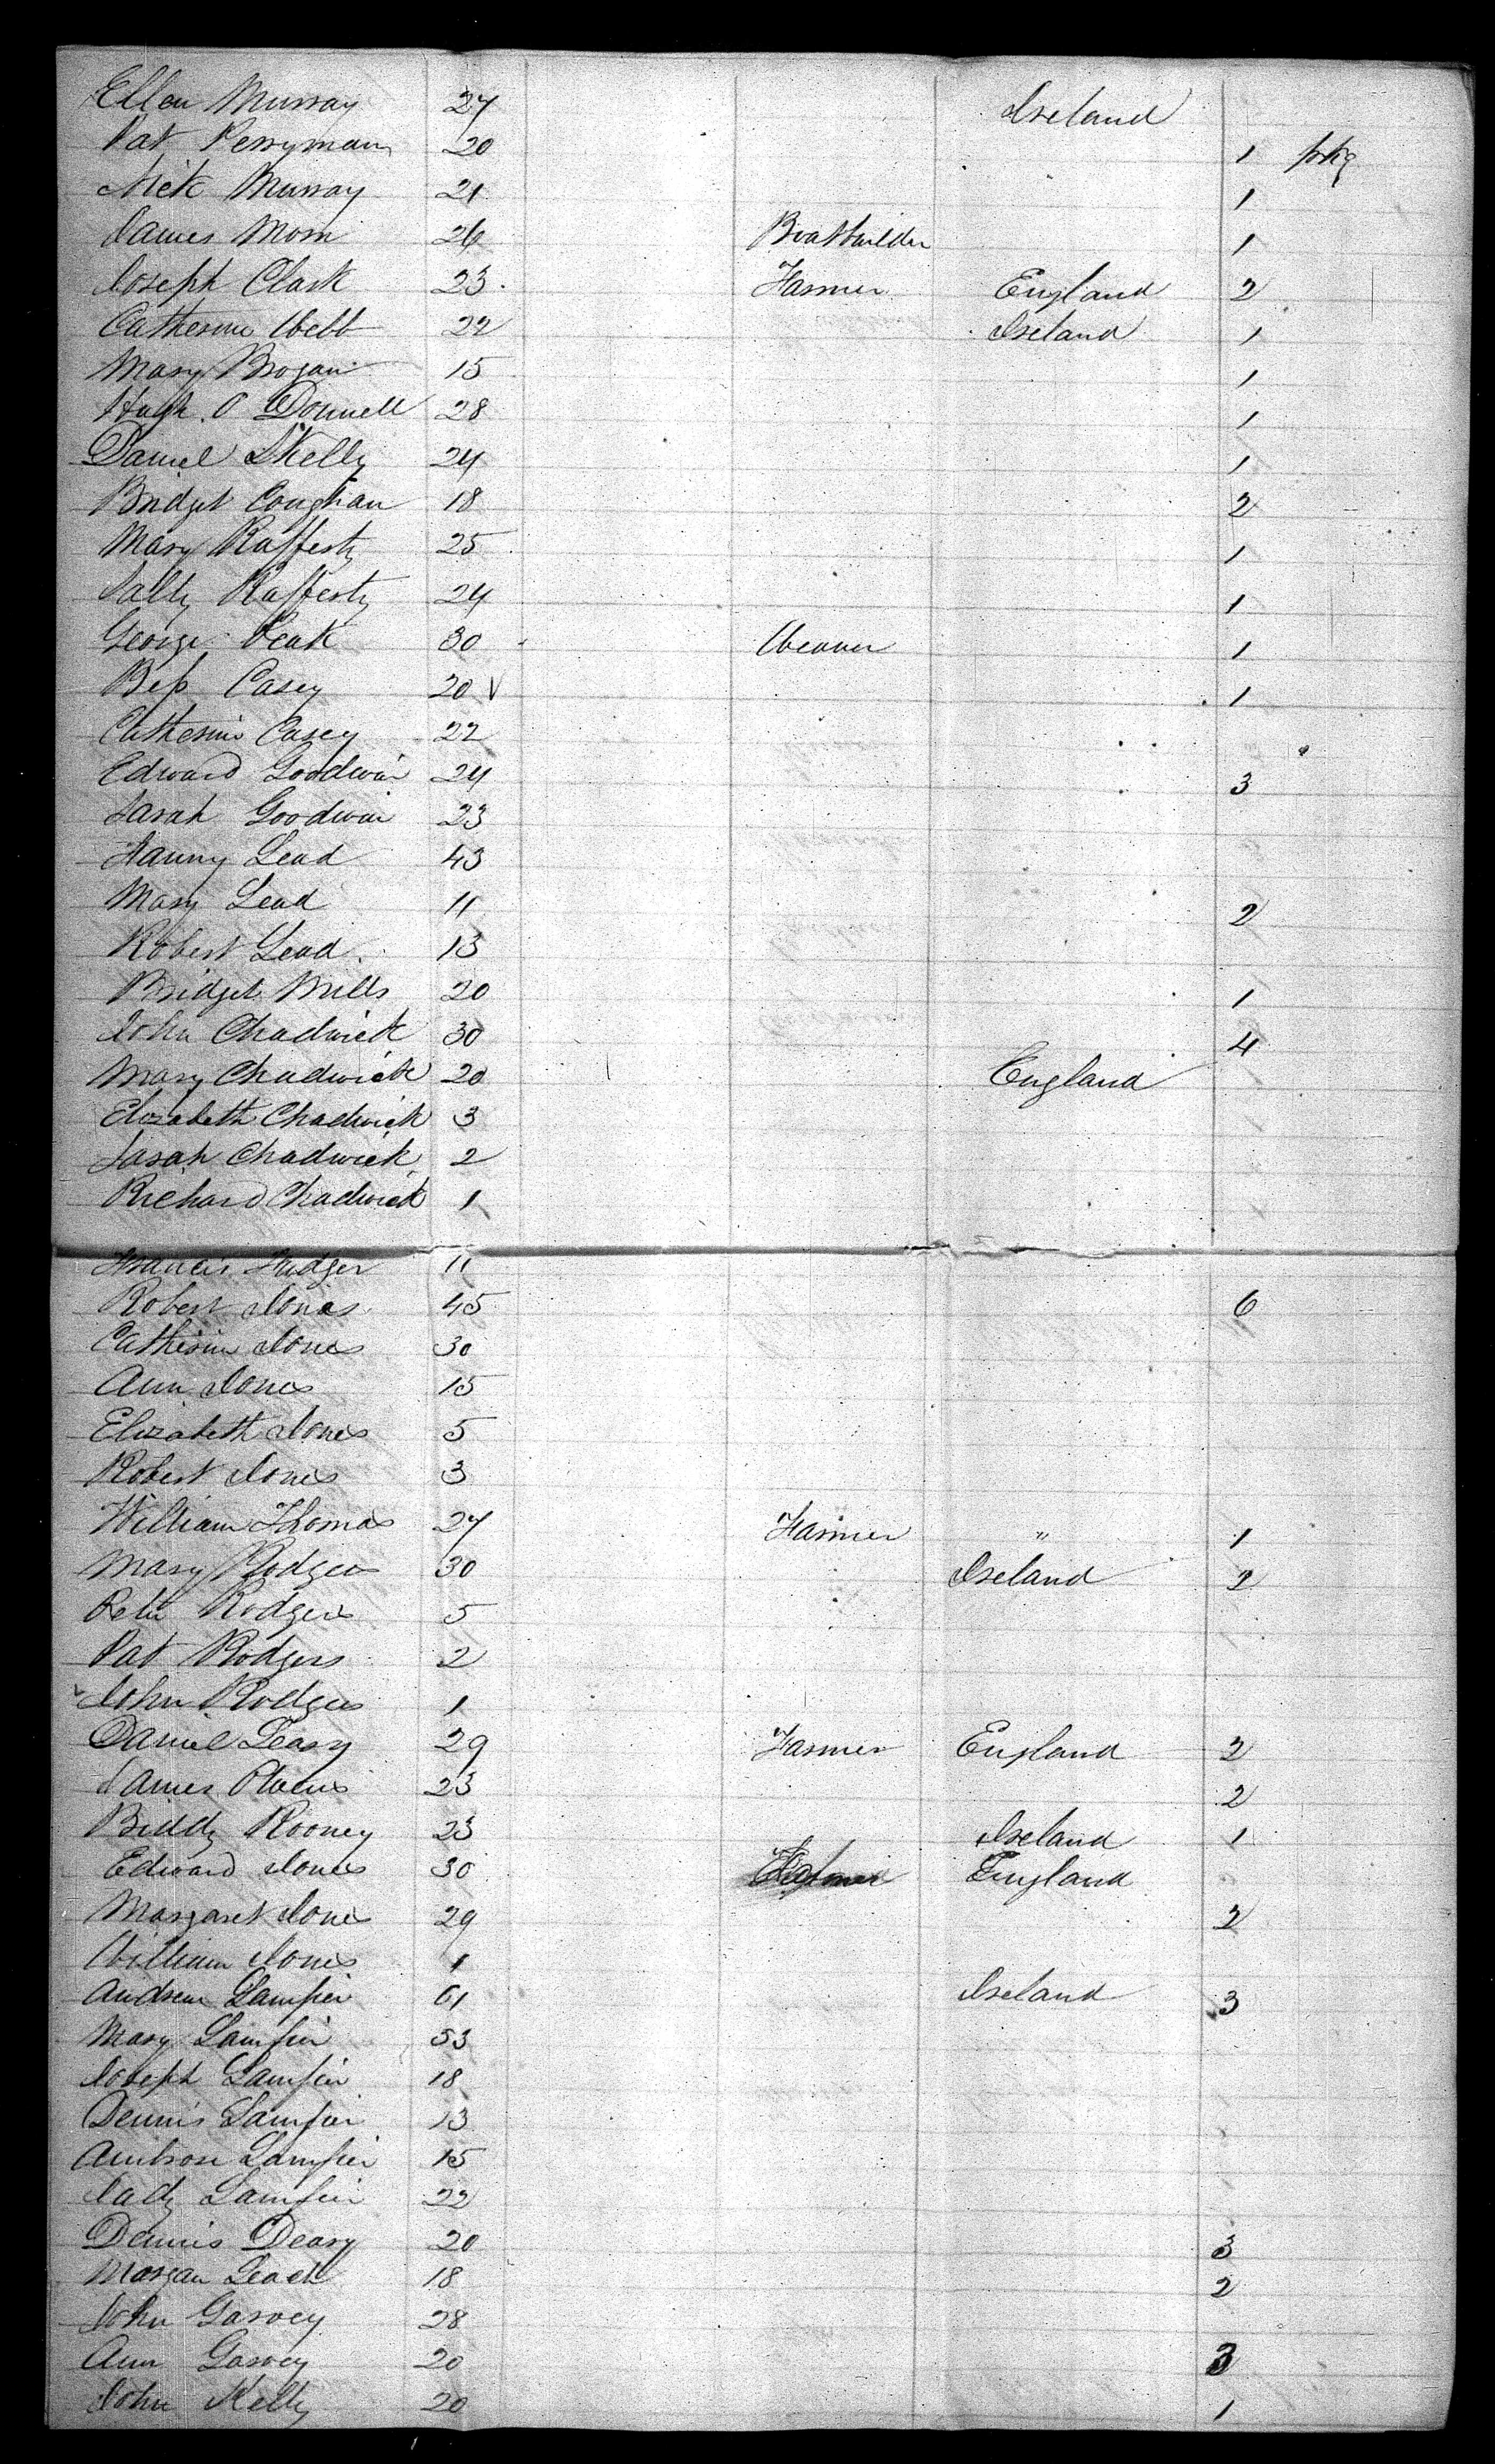 Ellen Murray 27 Ireland
Pat Perryman 20 1 pkg
Nick Murray 21 1
James Morn 26 Boatbuilder 1
Joseph Clark 23 Farmer England 2
Catherine Webb 22 Ireland 1
Mary Brogan 15 1
Hugh O Donnell 28 1
Daniel Skelly 24 1
Bridget Coughan 18 2
Mary Rafferty 25 1
Sally Rafferty 24 1
George Peak 30 Weaver 1
Bess Casey 20 V 1
Catherine Casey 22
Edward Goodwin 24 3
Sarah Goodwin 23
Fanny Lead 43
Mary Lead 11 2
Robert Lead 13
Bridget Mills 20 1
John Chadwick 30 4
Mary Chadwick 20 England
Elizabeth Chadwick 3
Sarah Chadwick 2
Richard Chadwick 1
Francis 11
Robert Jones 45 6
Catherine Jones 30
Ann Jones 15
Elizabeth Jones 5
Robert Jones 3
William Thomas 27 Farmer " 1
Mary Rodgers 30 Ireland 2
Peter Rodgers 5
Pat Rodgers 2
John Rodgers 1
Daniel Leary 29 Farmer England 2
James 23 2
Biddy Rooney 23 Ireland 1
Edward Jones 30 England
Margaret Jones 29 2
William Jones 1
Andrew Lamfier 61 Ireland 3
Mary Lamfier 53
Joseph Lamfier 18
Dennis Lamfier 13
Ambrose Lamfier 15
Lamfier 22
Dennis Deary 20 3
Morgan Leach 18 2
John Garvey 28
Ann Garvey 20 3
John Kelly 20 1